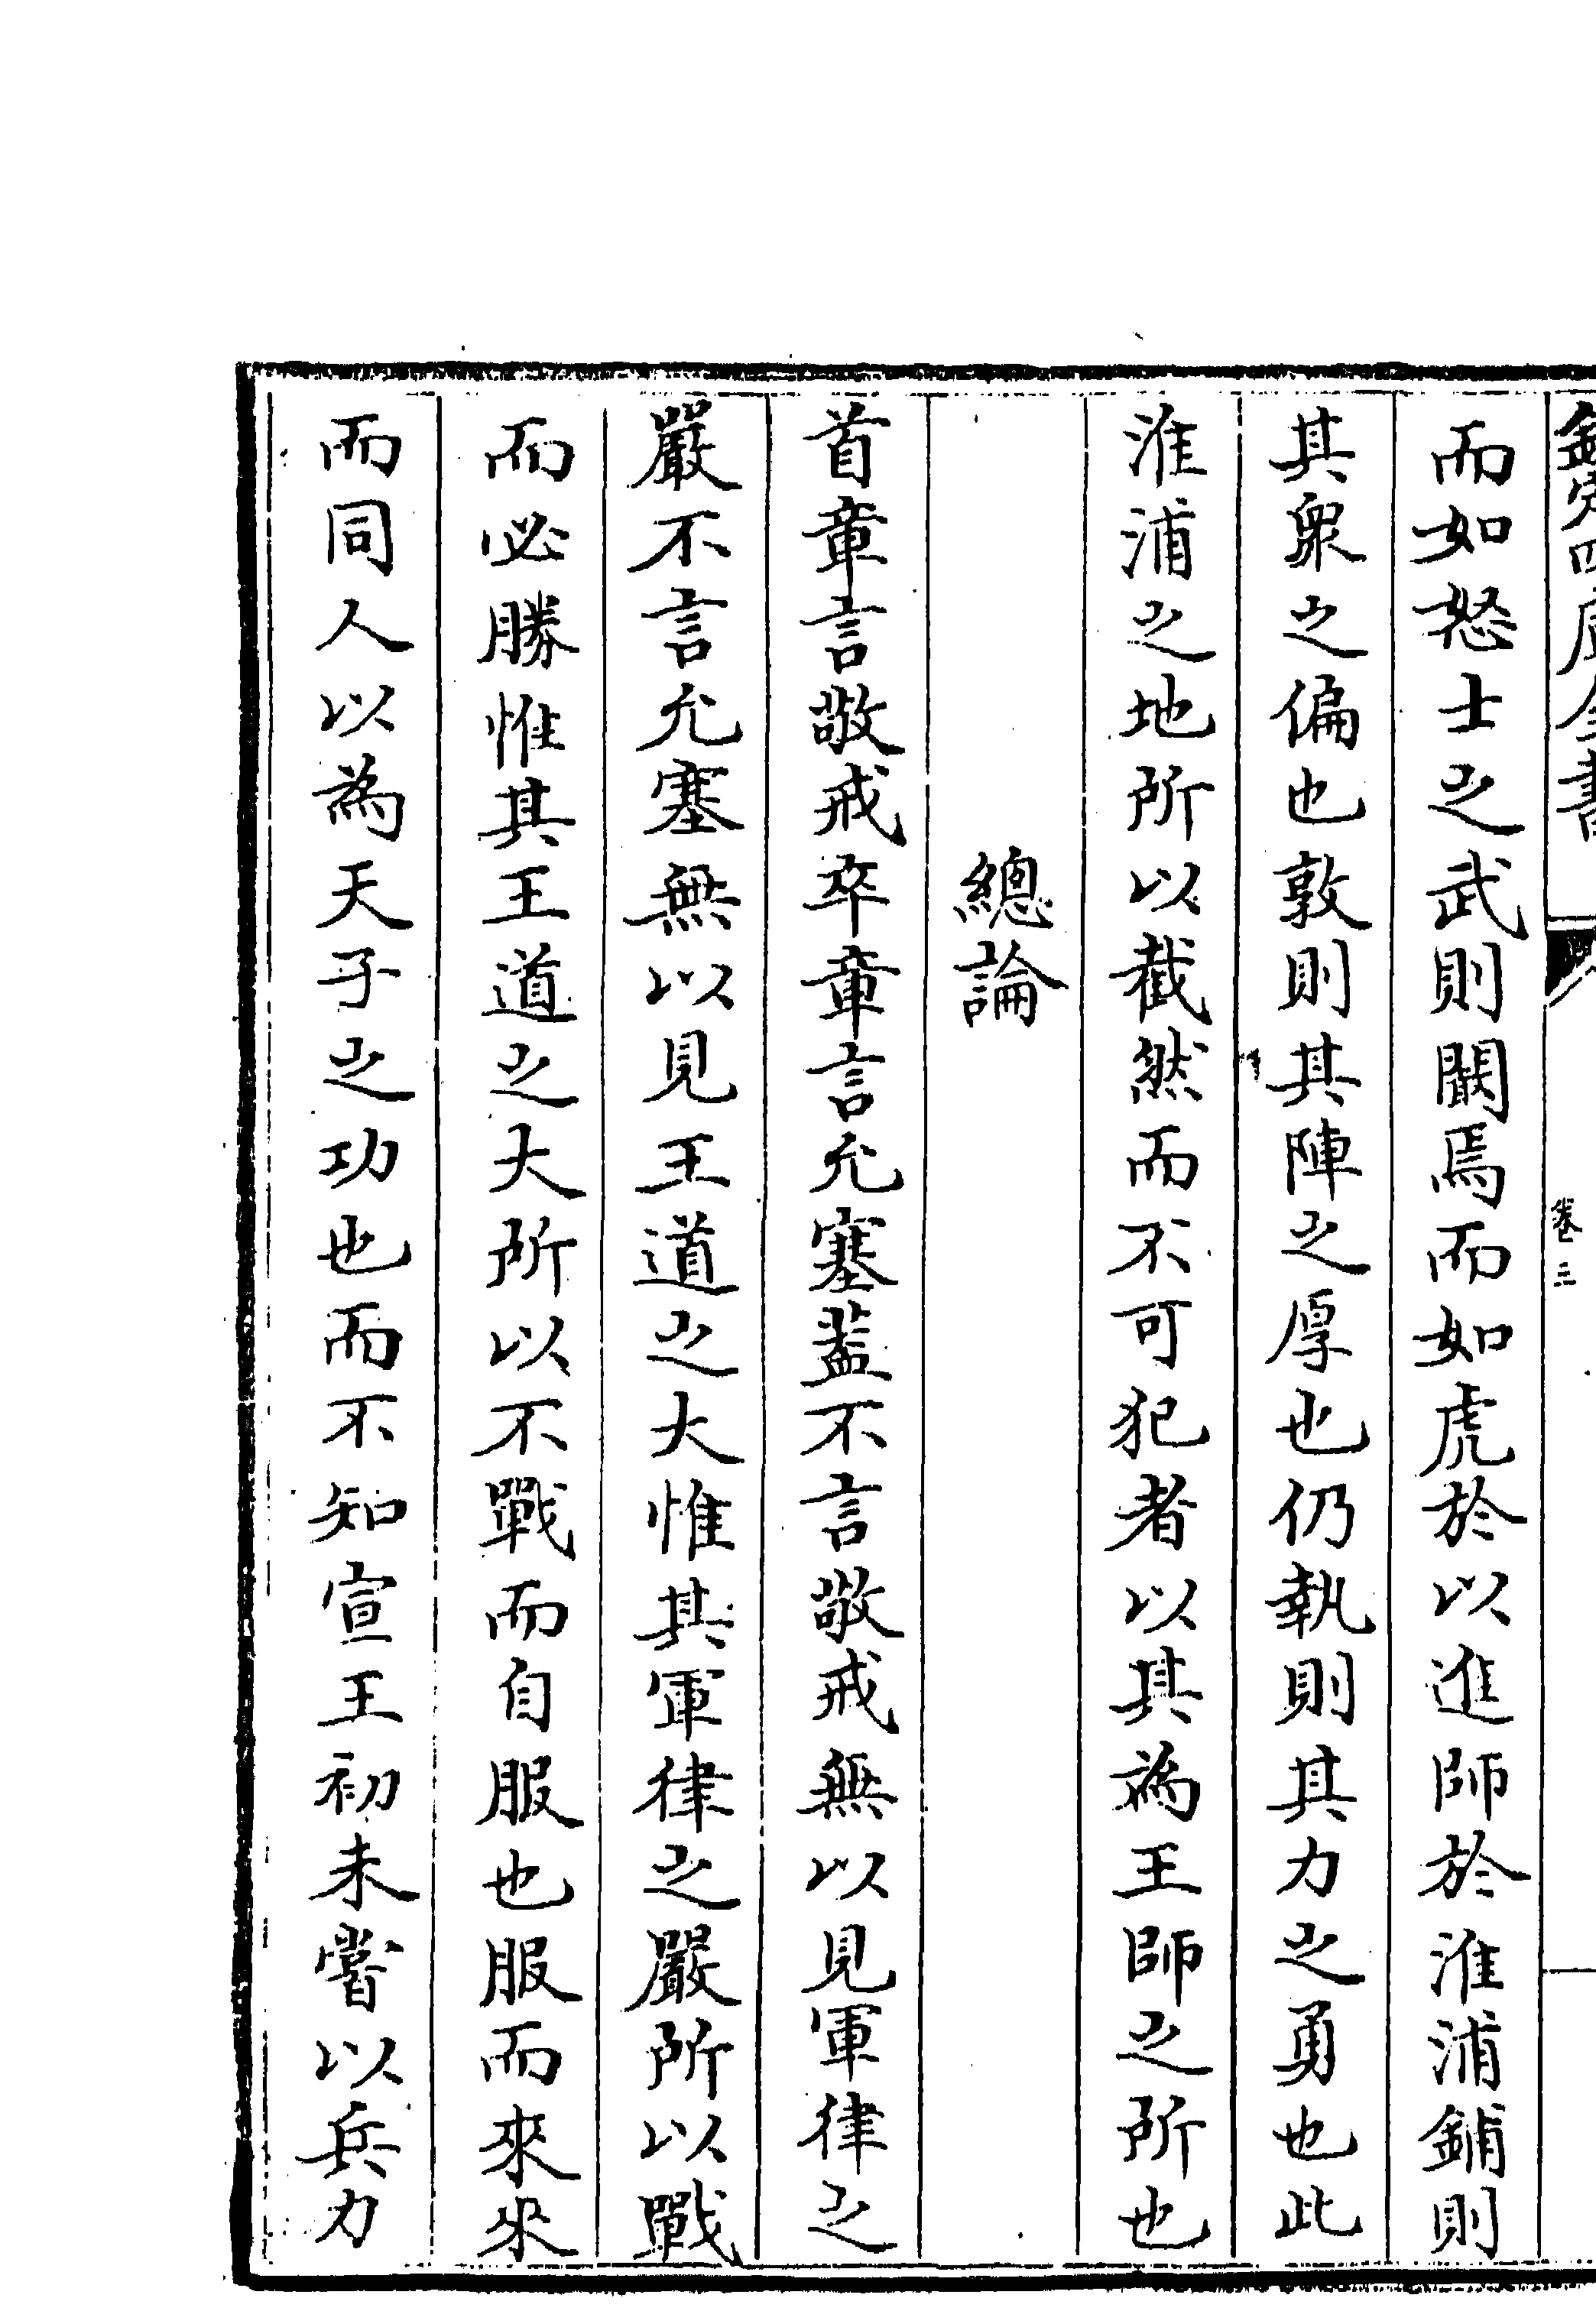 欽定四庫全書
卷三
而如怒士之武則闞焉而如虎於以進師於淮浦鋪則
其衆之偏也敦則其陣之厚也仍執則其力之勇也此
淮浦之地所以截然而不可犯者以其為王師之所也
總論
首章言敬戒卒章言允塞葢不言敬戒無以見軍律之
嚴不言允塞無以見王道之大惟其軍律之嚴所以戰
而必勝惟其王道之大所以不戰而自服也服而來來
而同人以為天子之功也而不知宣王初未嘗以兵力